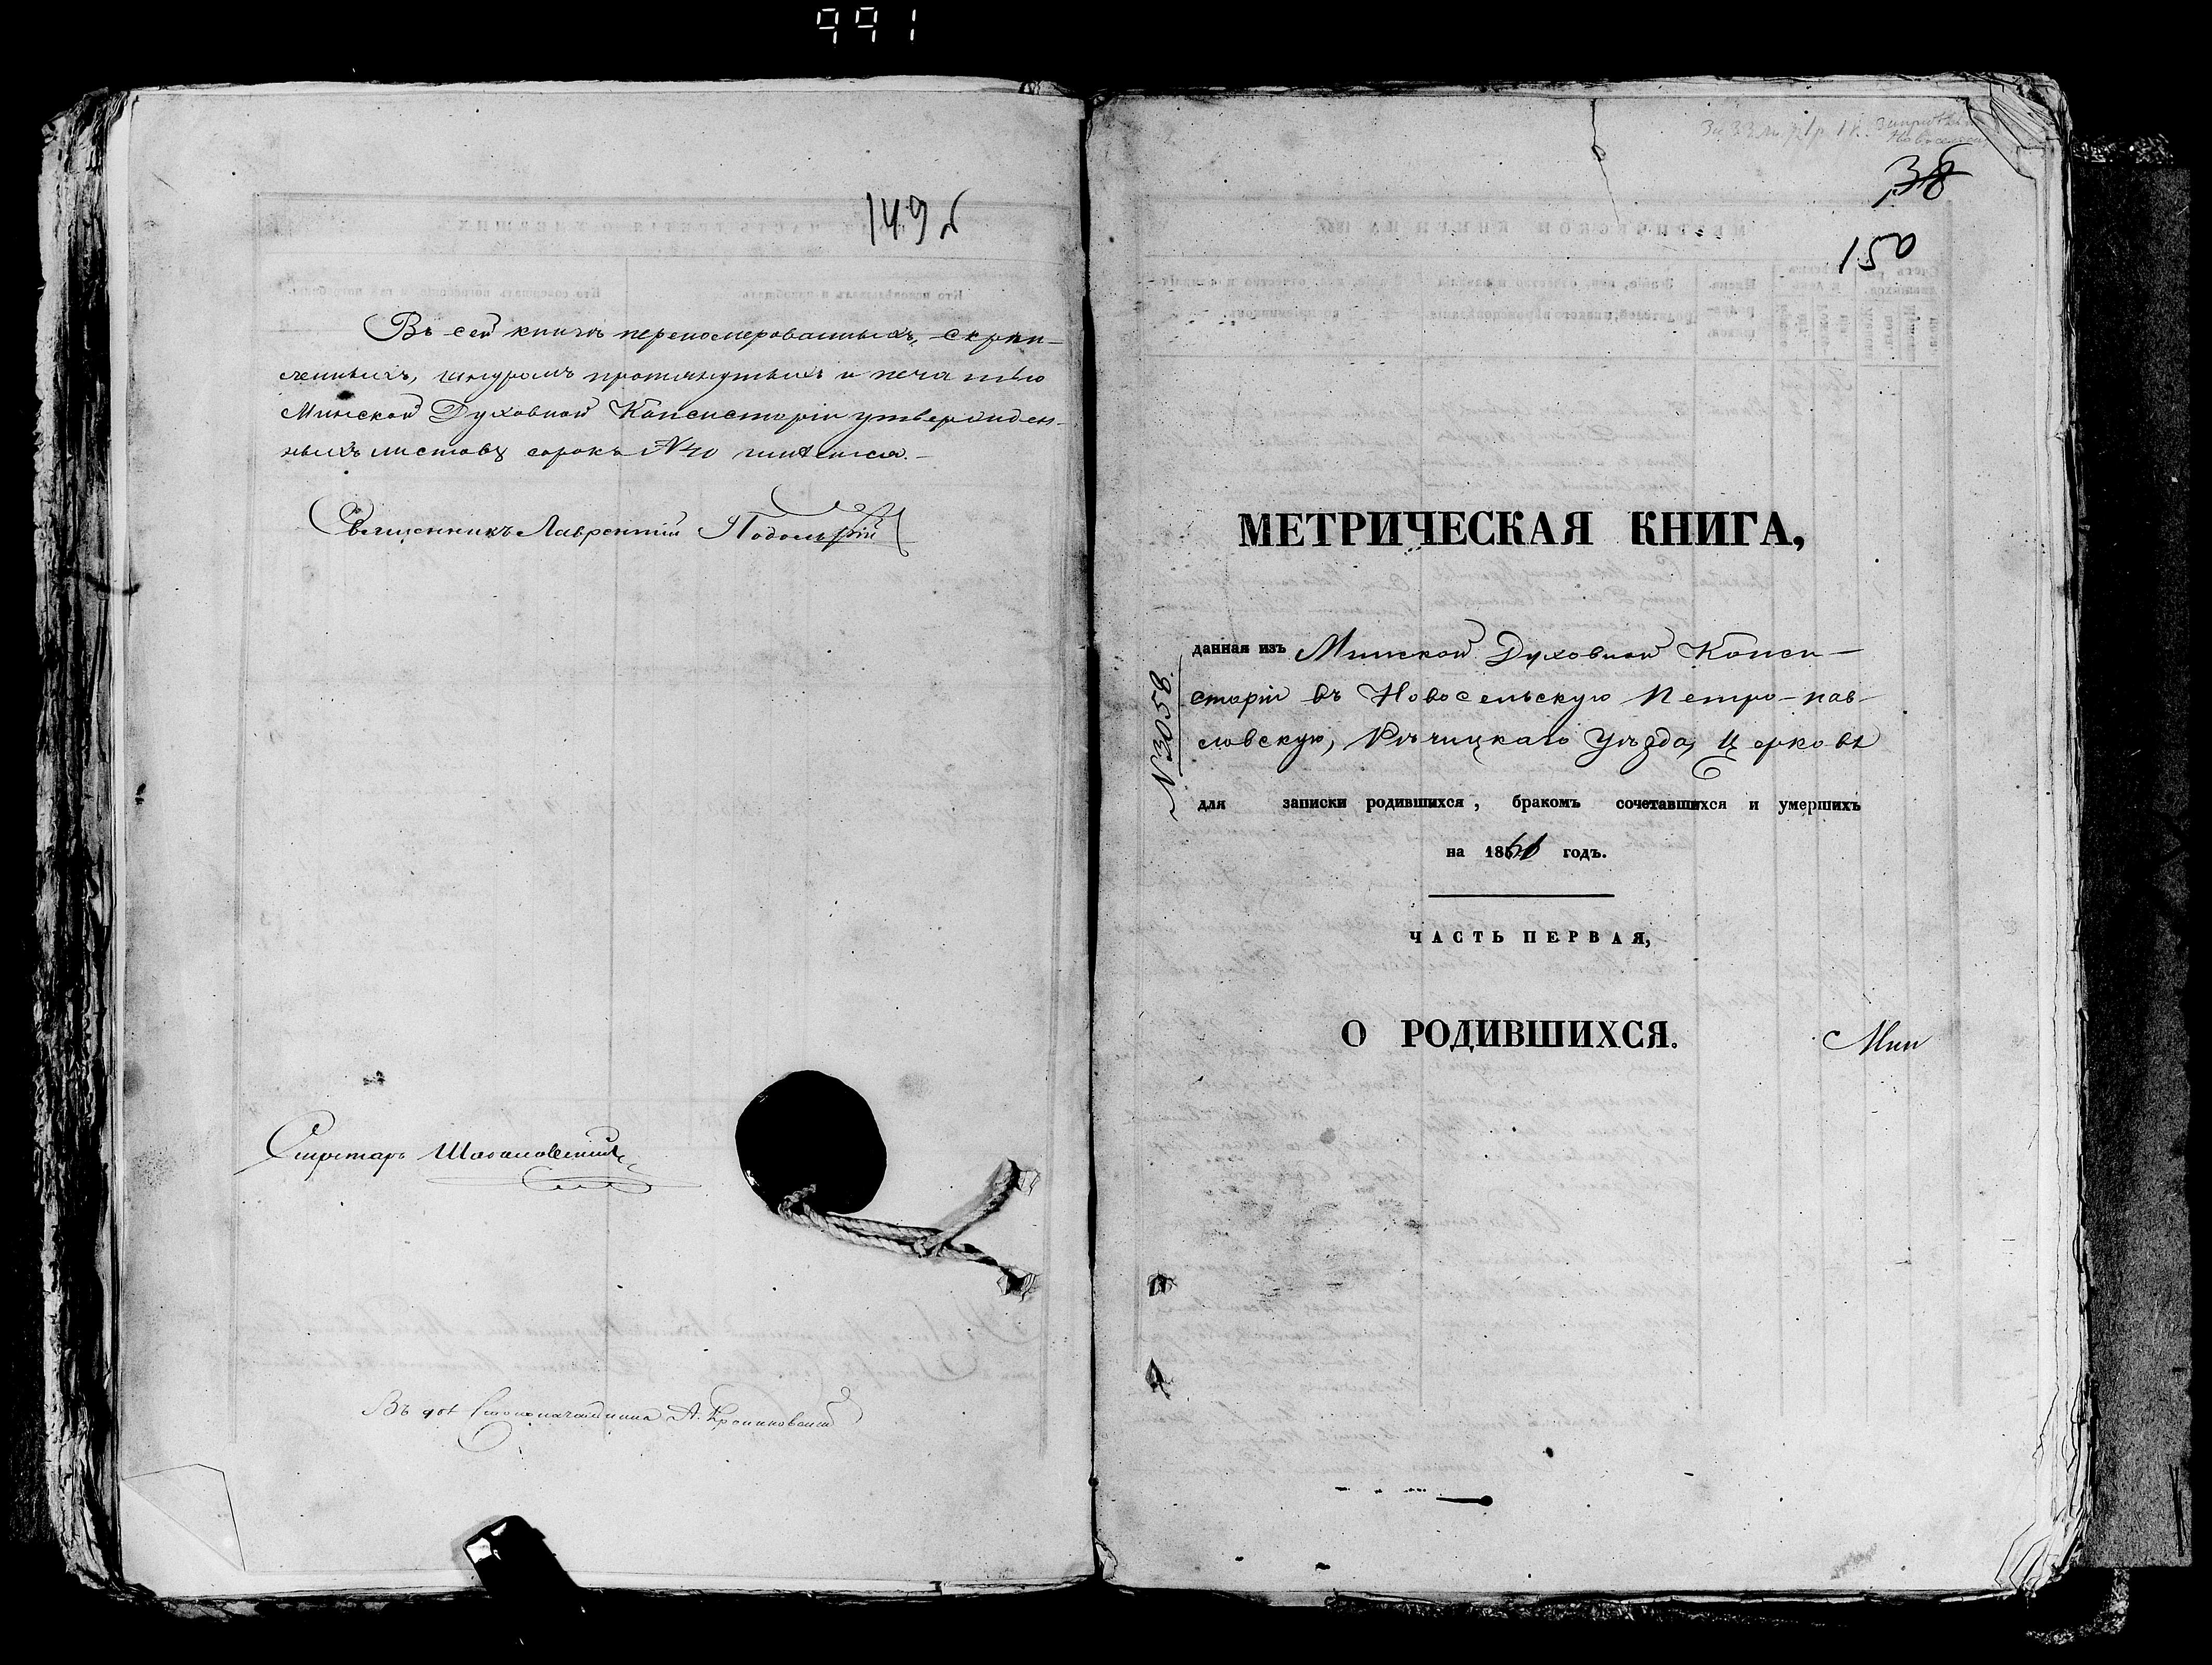 991
149
Въ сей книгѣ перенумерованныхъ, скрѣп-
ленныхъ, шнуромъ протянутыхъ и печатью
Минской Духовной Консисторіи утвержден-
ныхъ листовъ сорокъ №40 имѣется.
Священникъ Лаврентій
Секретарь
Въ Столоначальника А.
38
150
МЕТРИЧЕСКАЯ КНИГА,
данная изъ Минской Духовной Конси-
сторіи въ Новосельскую Петро-пав-
ловскую, Рѣчицкаго Уѣзда, Церковь
№3058
для записки родившихся, бракомъ сочетавшихся и умершихъ
на 1861 годъ.
ЧАСТЬ ПЕРВАЯ,
О РОДИВШИХСЯ.
Мин